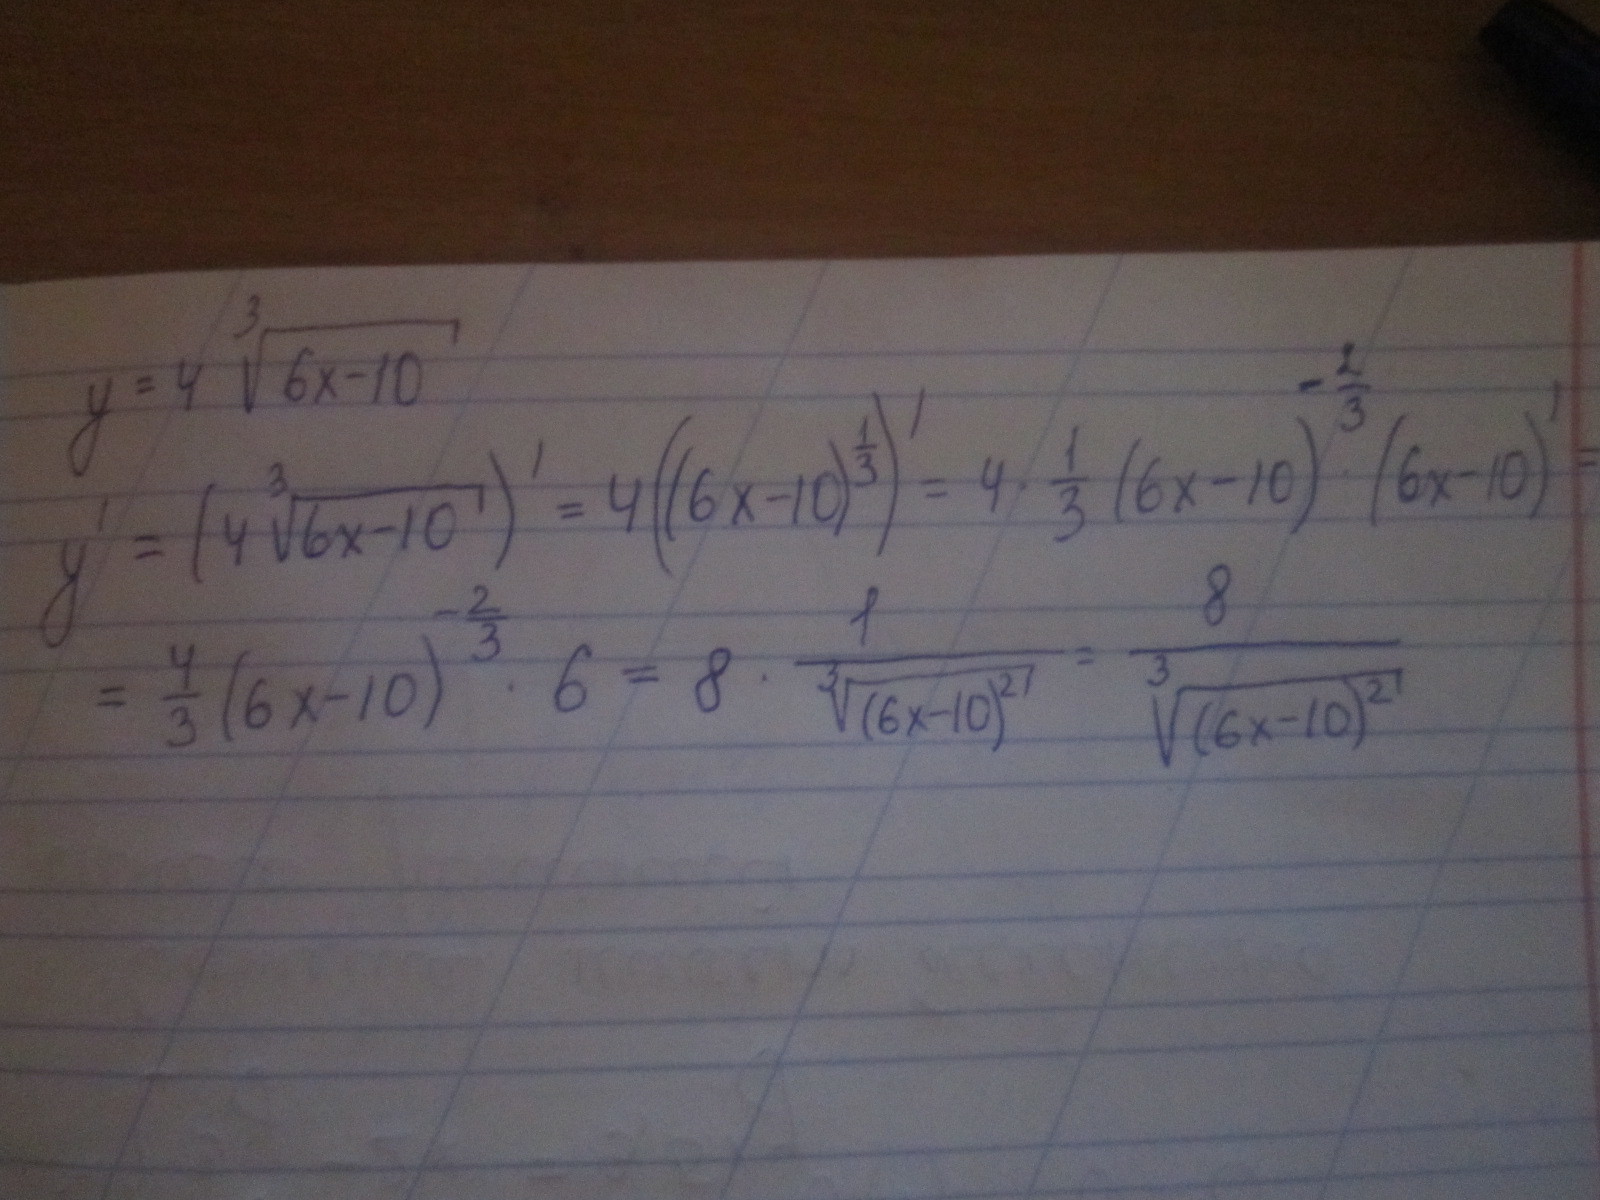 y = 4∛(6x-10)
y' = (4∛(6x-10))' = 4((6x-10)^(1/3))' = 4 · 1/3 (6x-10)^(-2/3) · (6x-10)' =
= 4/3 (6x-10)^(-2/3) · 6 = 8 · 1/∛((6x-10)²) = 8/∛((6x-10)²)